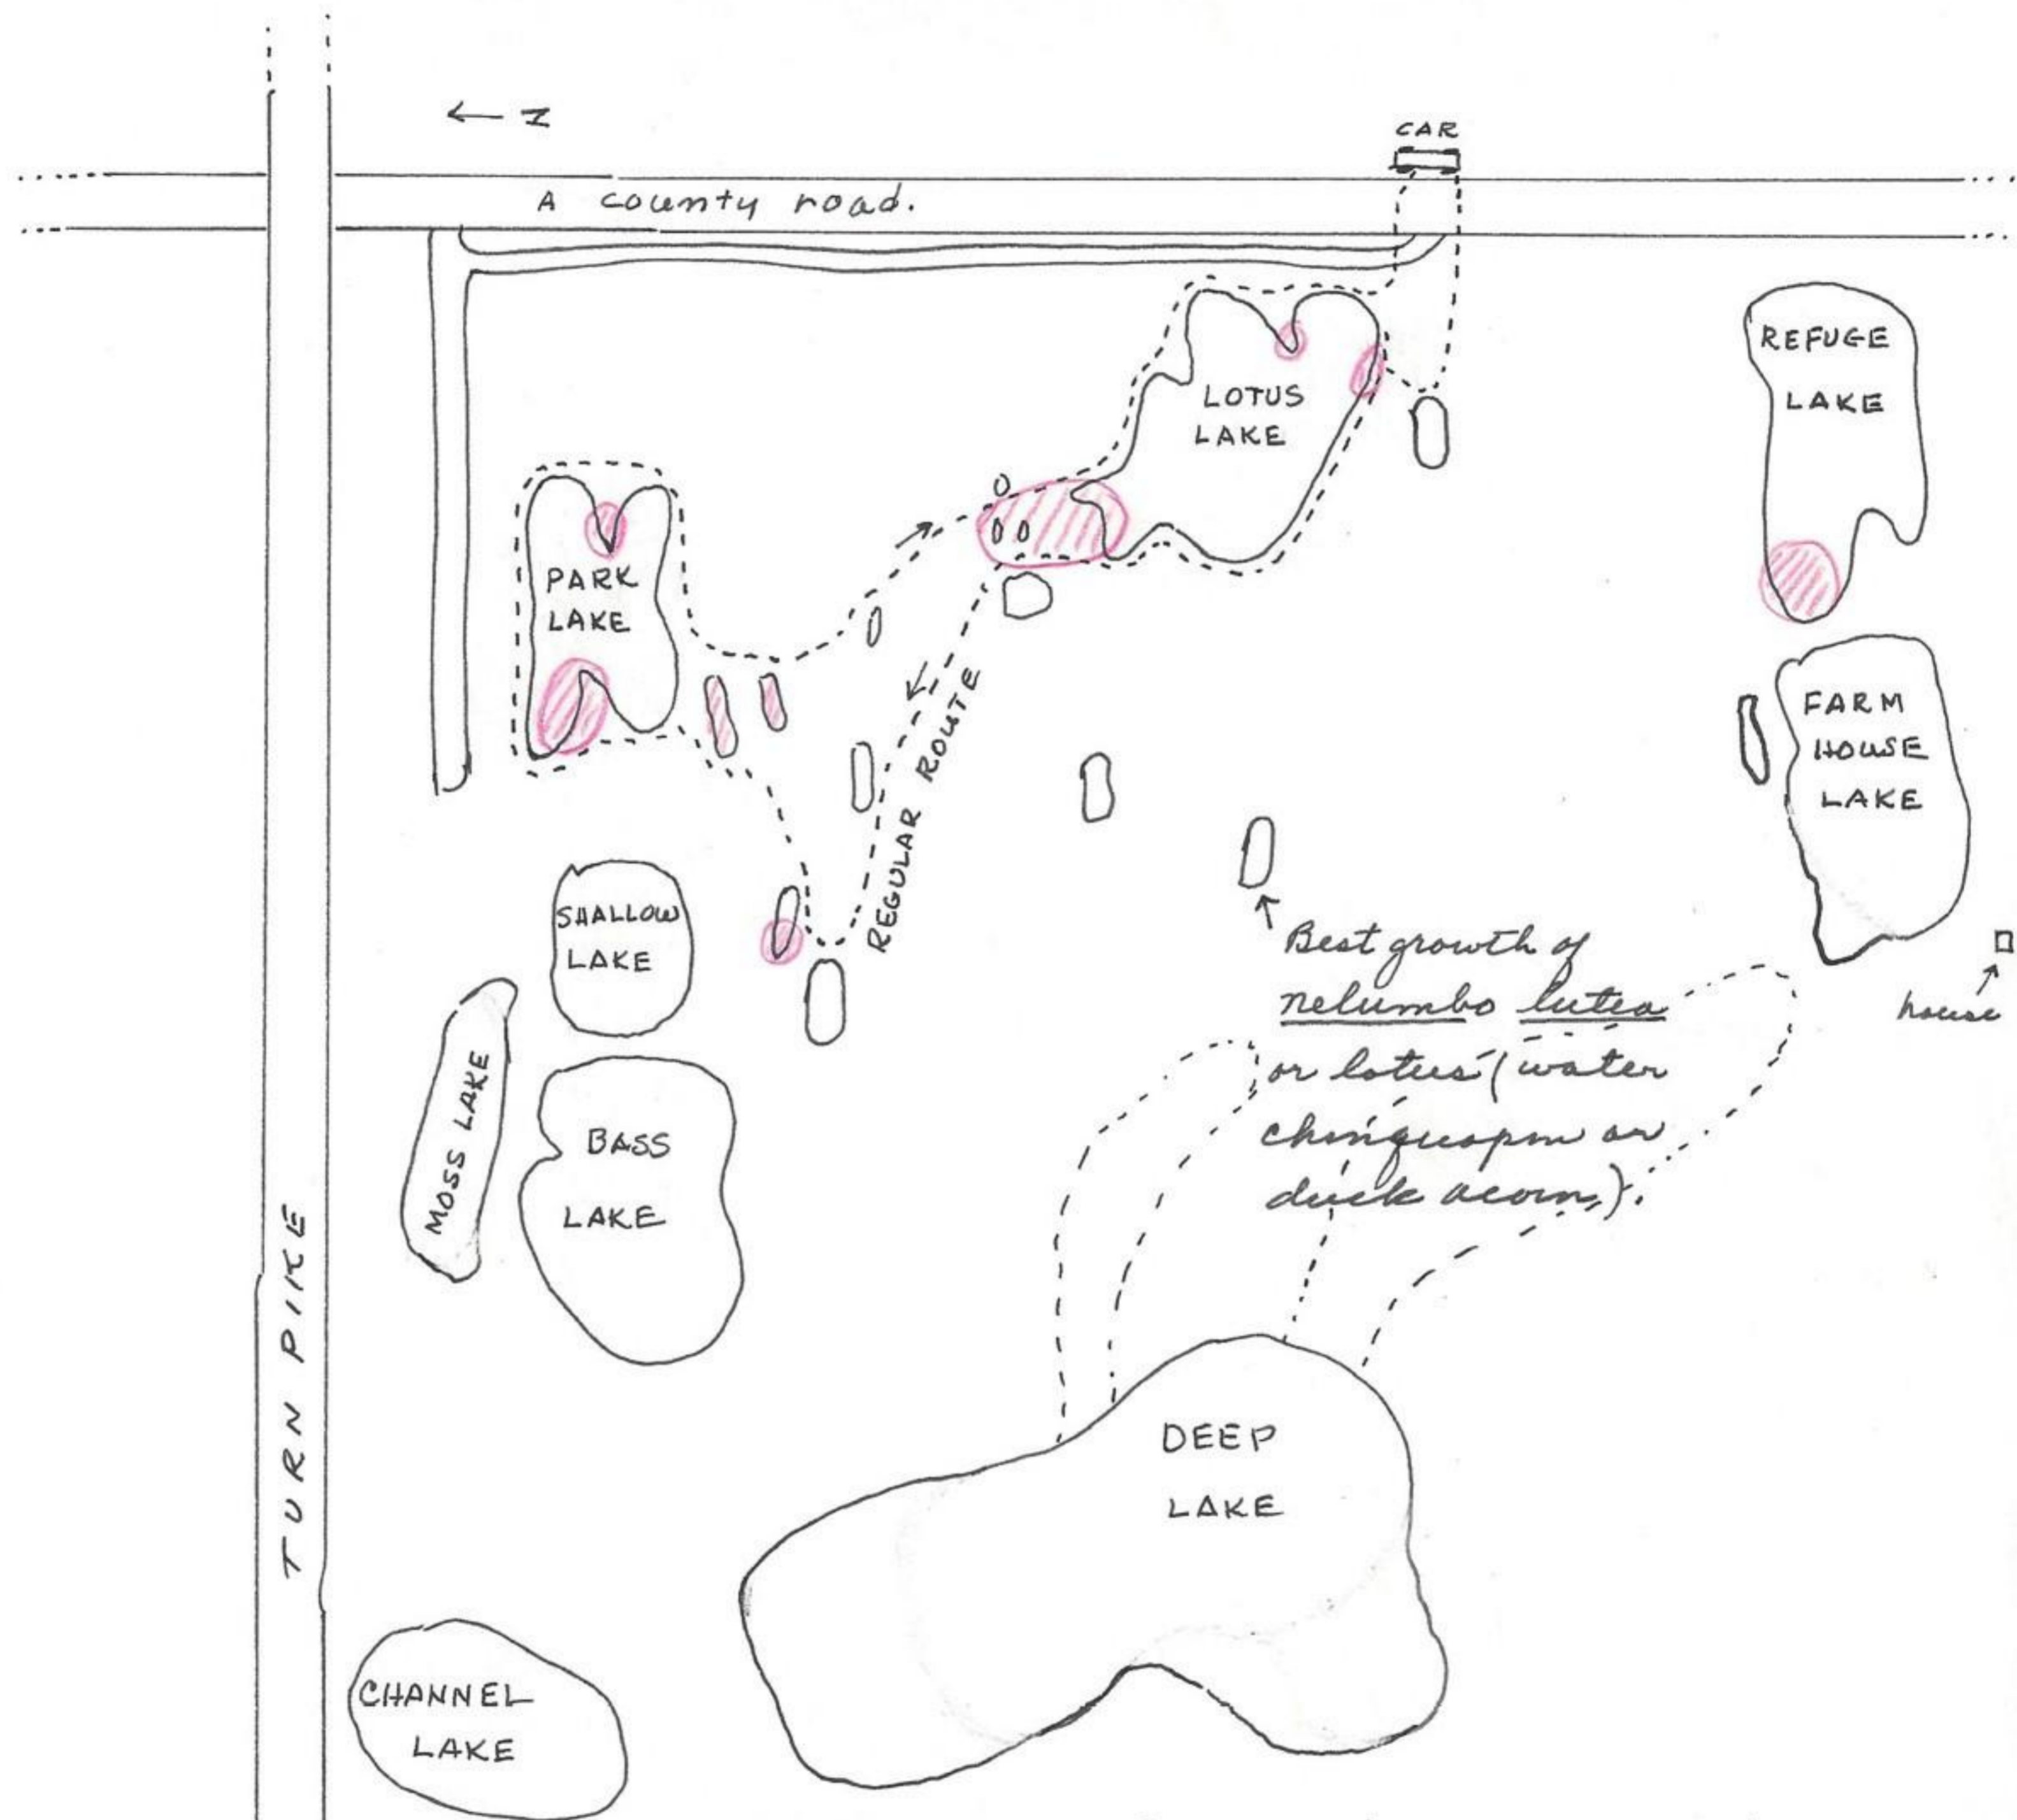 ← N
CAR
A county road.
REFUGE
LAKE
LOTUS
LAKE
PARK
LAKE
FARM
HOUSE
LAKE
REGULAR ROUTE
SHALLOW
LAKE
Best growth of
nelumbo lutea
or lotus (water
chinquapin or
duck acorn).
house
MOSS LAKE
BASS
LAKE
TURN PIKE
DEEP
LAKE
CHANNEL
LAKE